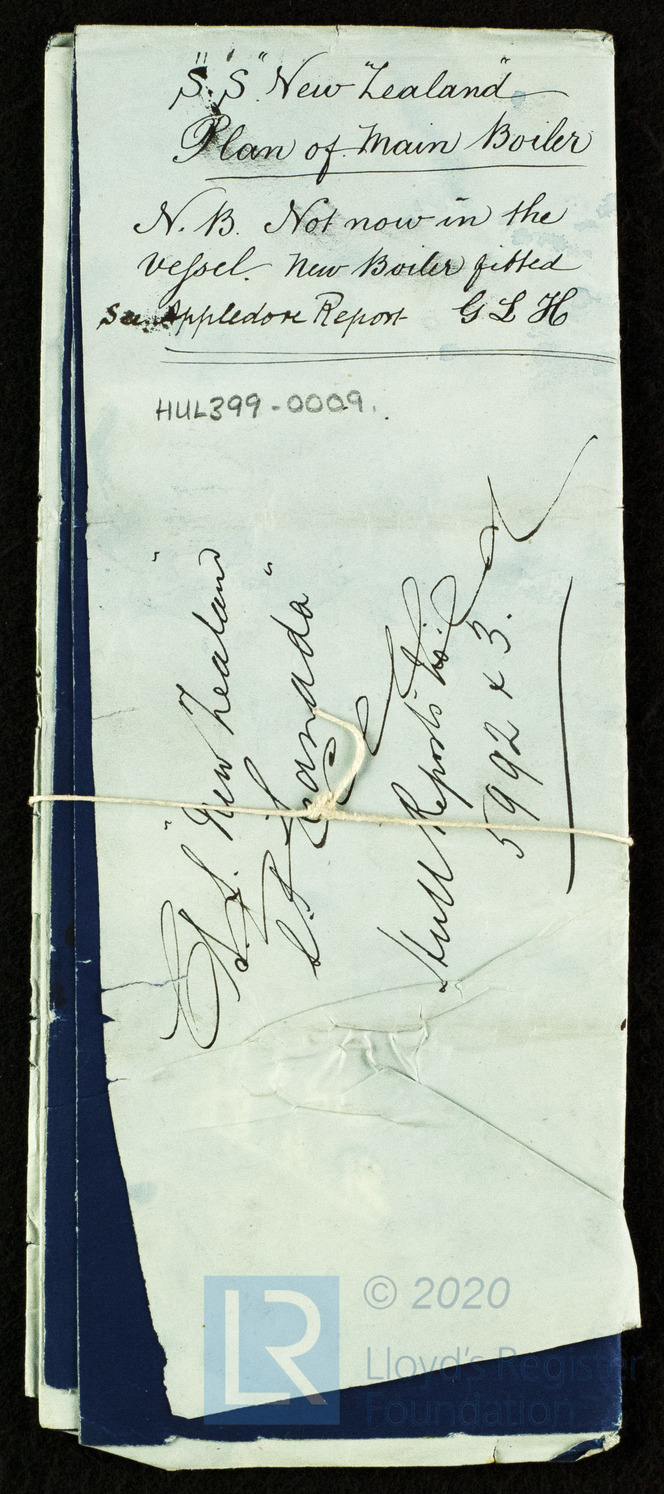 "S.S" New Zealand"
Plan of Main Boiler
N.B. Not now in the
vessel. New Boiler fitted
See Appledore Report G L H
HUL399-0009.
S.S. "New Zealand"
S.S. "Canada"
Hull Reports No.
5992 & 3.
LR
© 2020
Lloyd's Register
Foundation